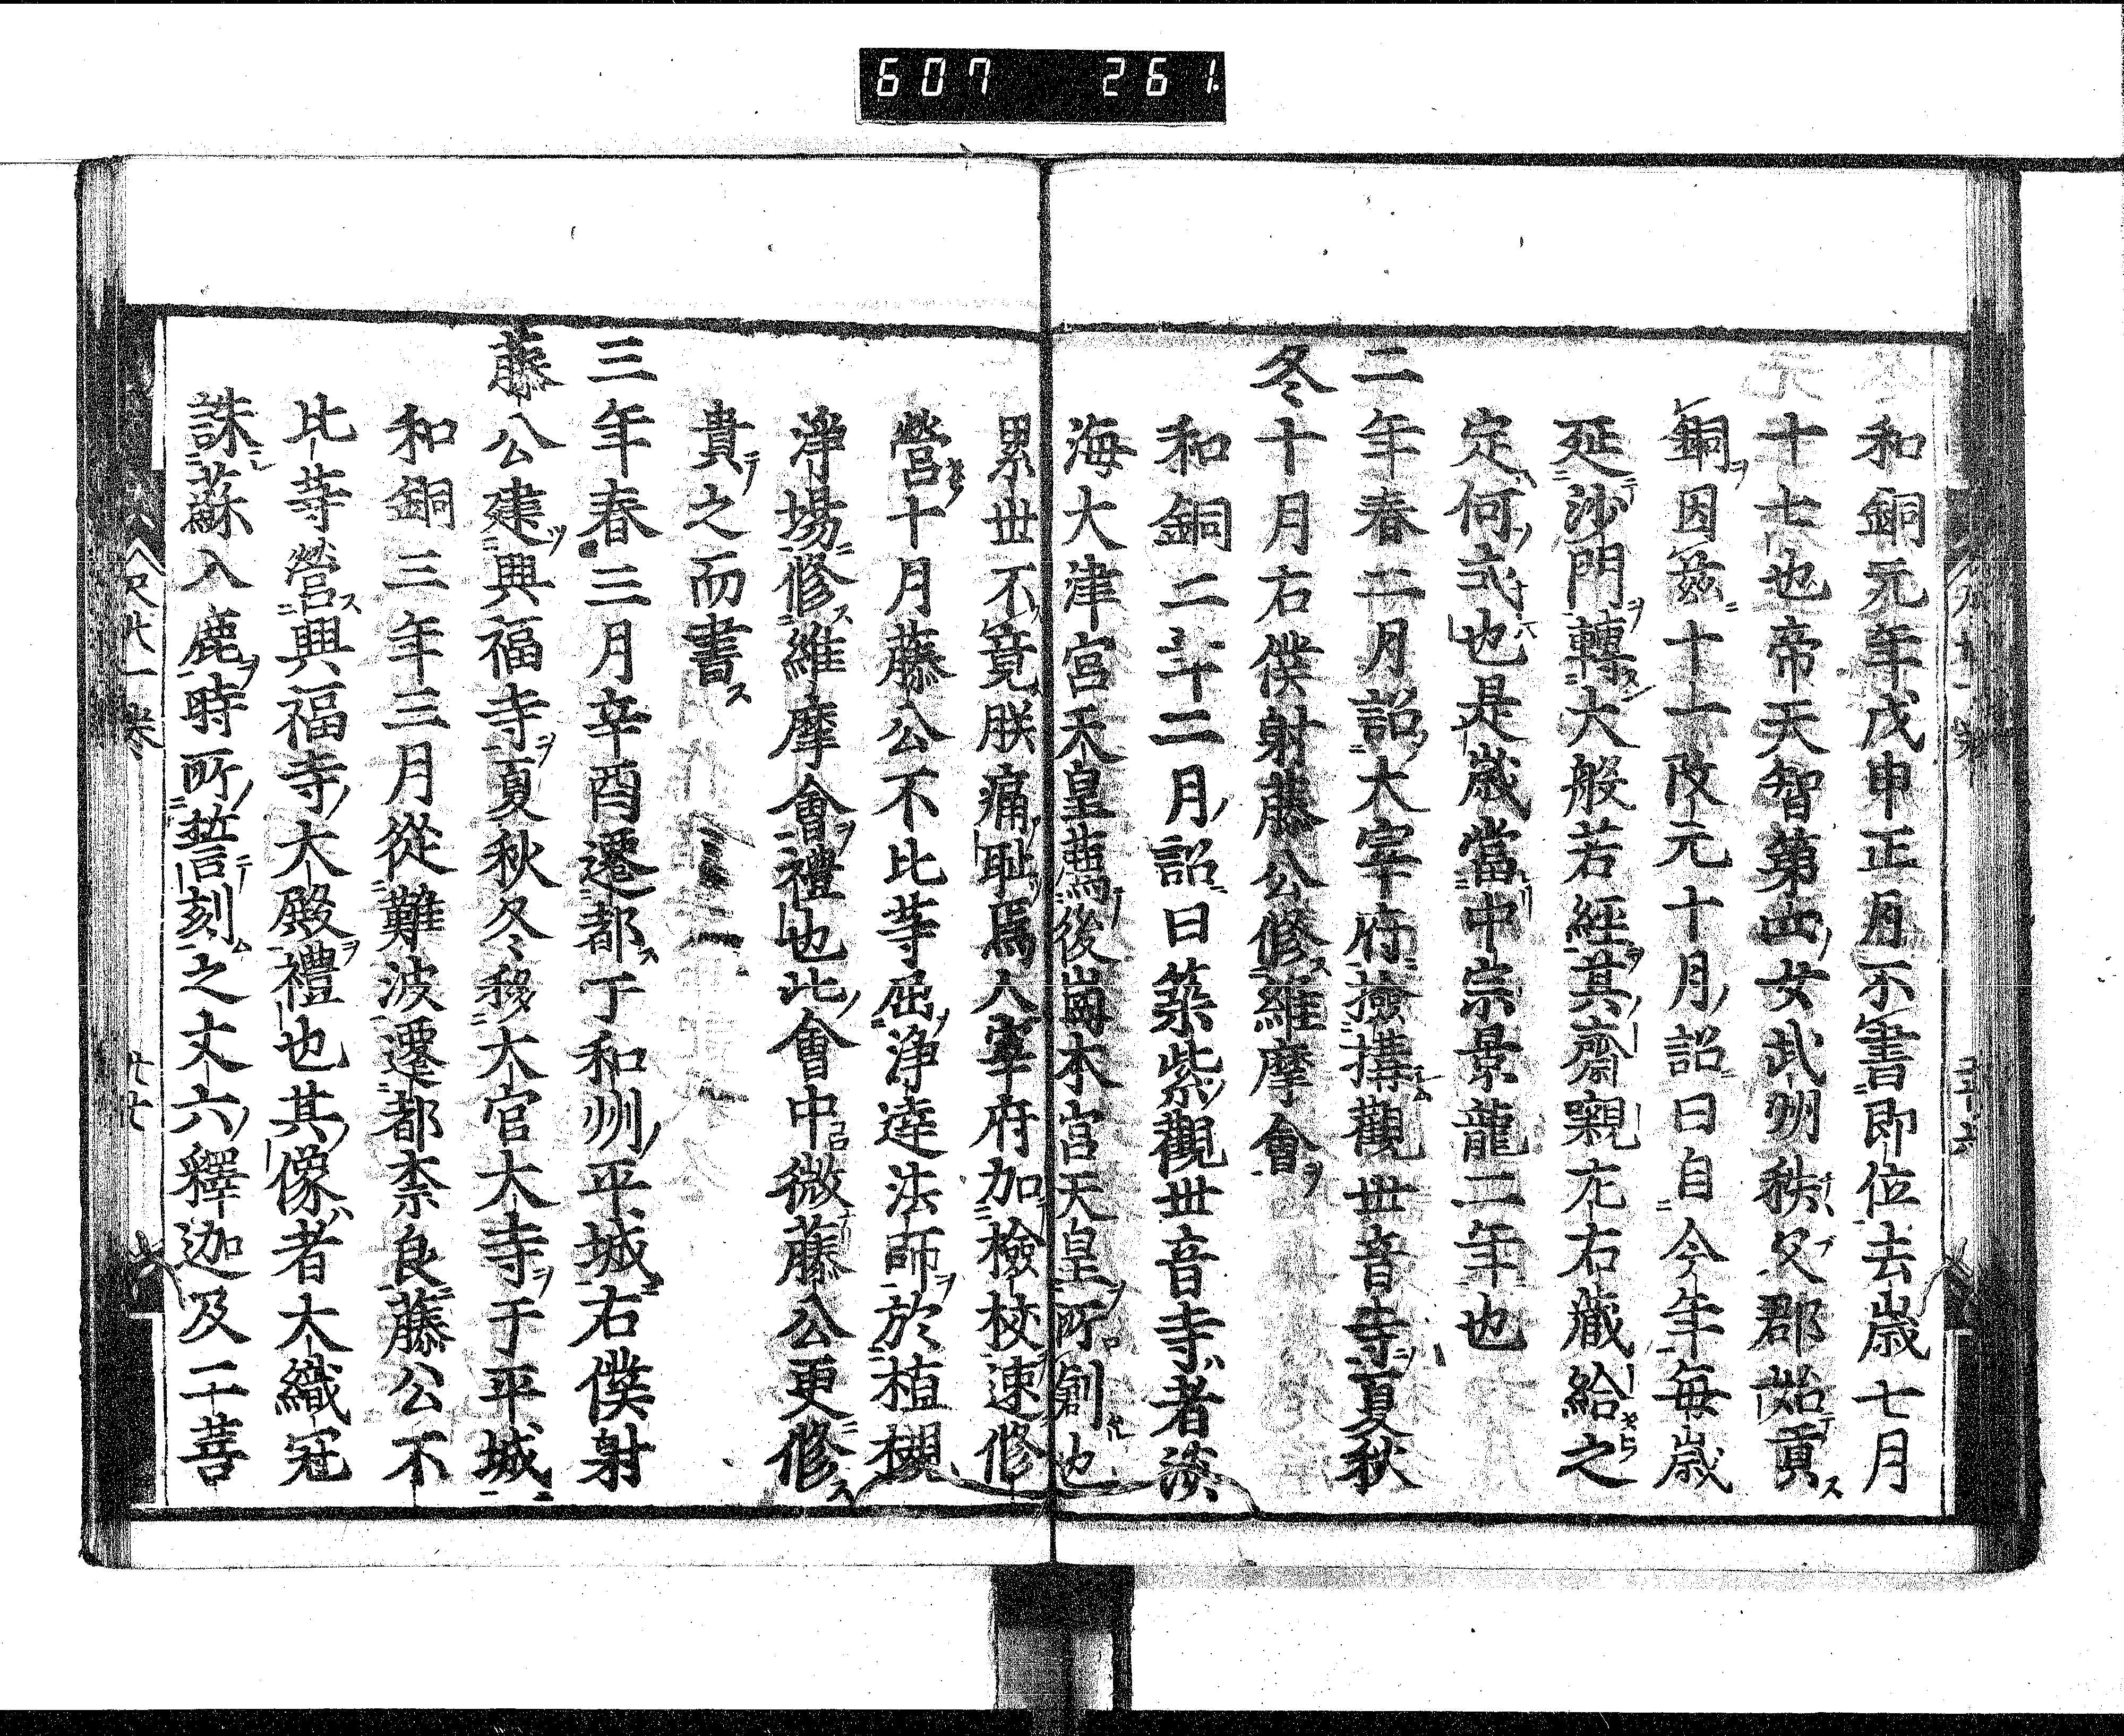 607 261
和銅元年戊申正月不書即位去歳七月
十七也帝天智第四女武州秩父郡始貢
銅因茲十一改元十月詔曰自今年毎歳
延沙門轉大般若經其齋襯尤右藏給之
定何式也是歳當中宗景龍二年也
二年春二月詔大宰府撿搆觀世音寺夏秋
冬十月右僕射藤公修維摩會
和銅二年二月詔曰築紫觀世音寺者淡
海大津宮天皇薦後崗木宮天皇所創也
累世不竟朕痛耻焉人宰府加檢校速修
營十月藤公不比等屈浄達法師於植槻
淨場修維摩會禮也此會中微藤公更修
貴之而書
三年春三月辛酉遷都于和州平城右僕射
藤公建興福寺夏秋冬移大官大寺于平城
和銅三年三月從難波遷都柰良藤公不
比等營興福寺大殿禮也其像者大織冠
誅蘇入鹿時所誓刻之丈六釋迦及二菩